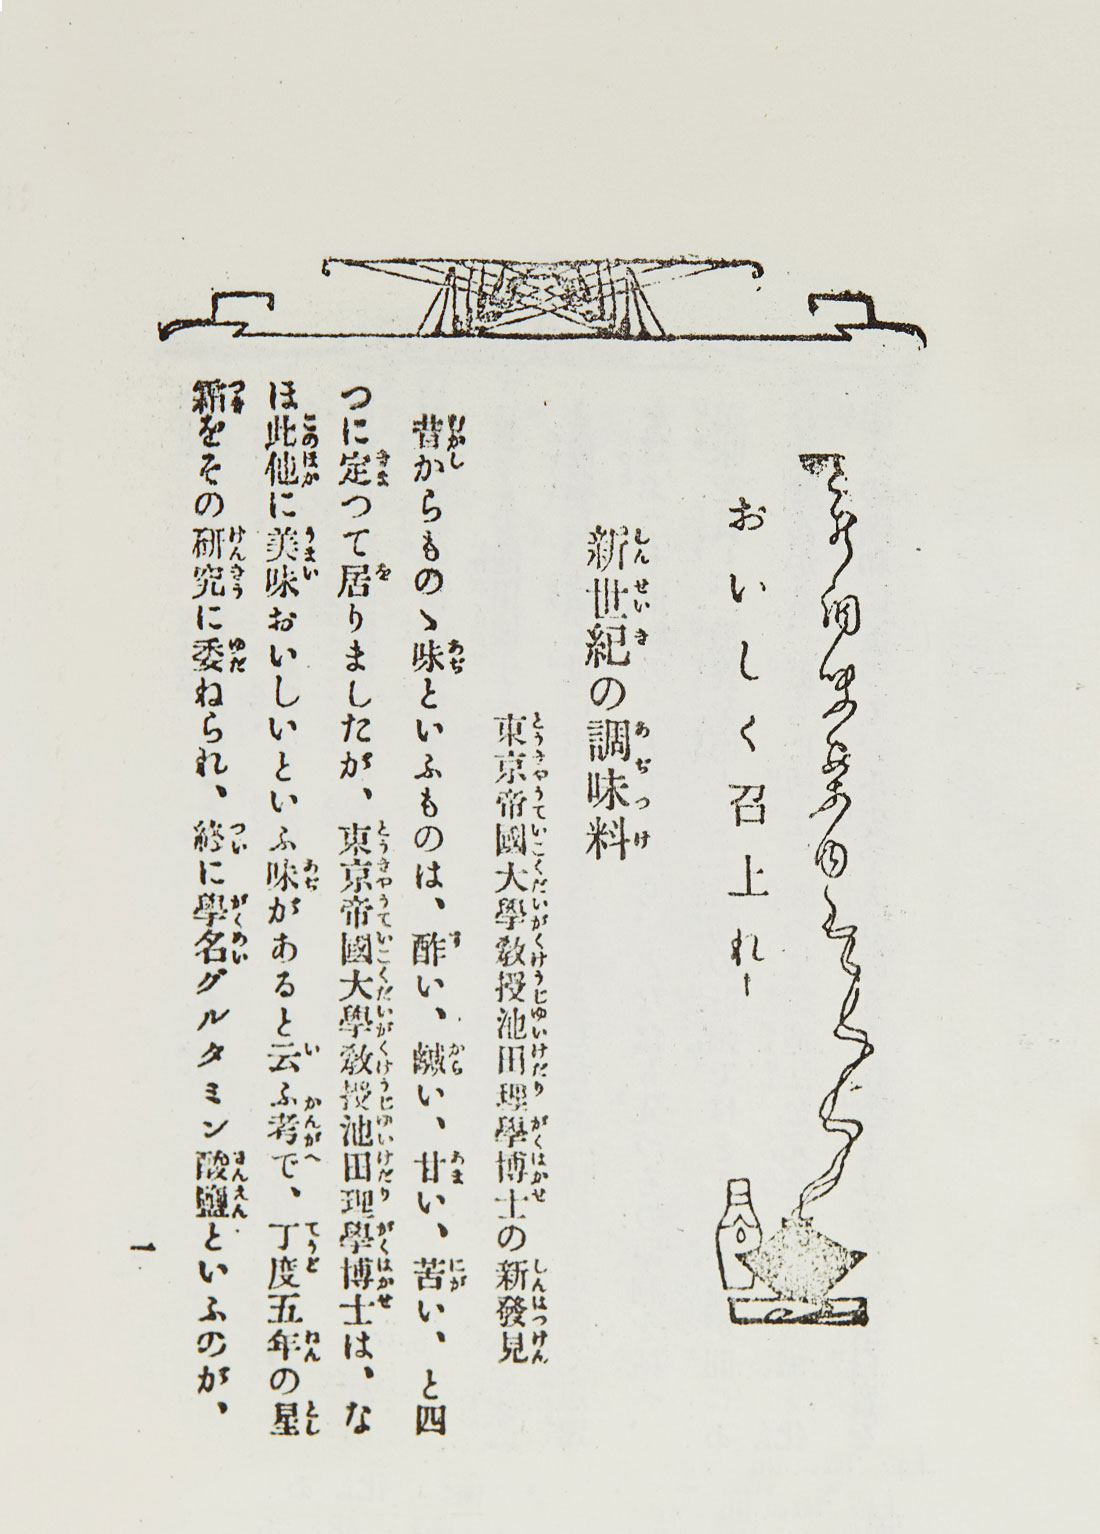 おいしく召上れ
新世紀の調味料
東京帝國大學教授池田理學博士の新發見
昔からものゝ味といふものは、酢い、鹹い、甘い、苦い、と四
つに定つて居りましたが、東京帝國大學教授池田理學博士は、な
ほ此他に美味おいしいといふ味があると云ふ考で、丁度五年の星
霜をその研究に委ねられ、終に學名グルタミン酸鹽といふのが、
一